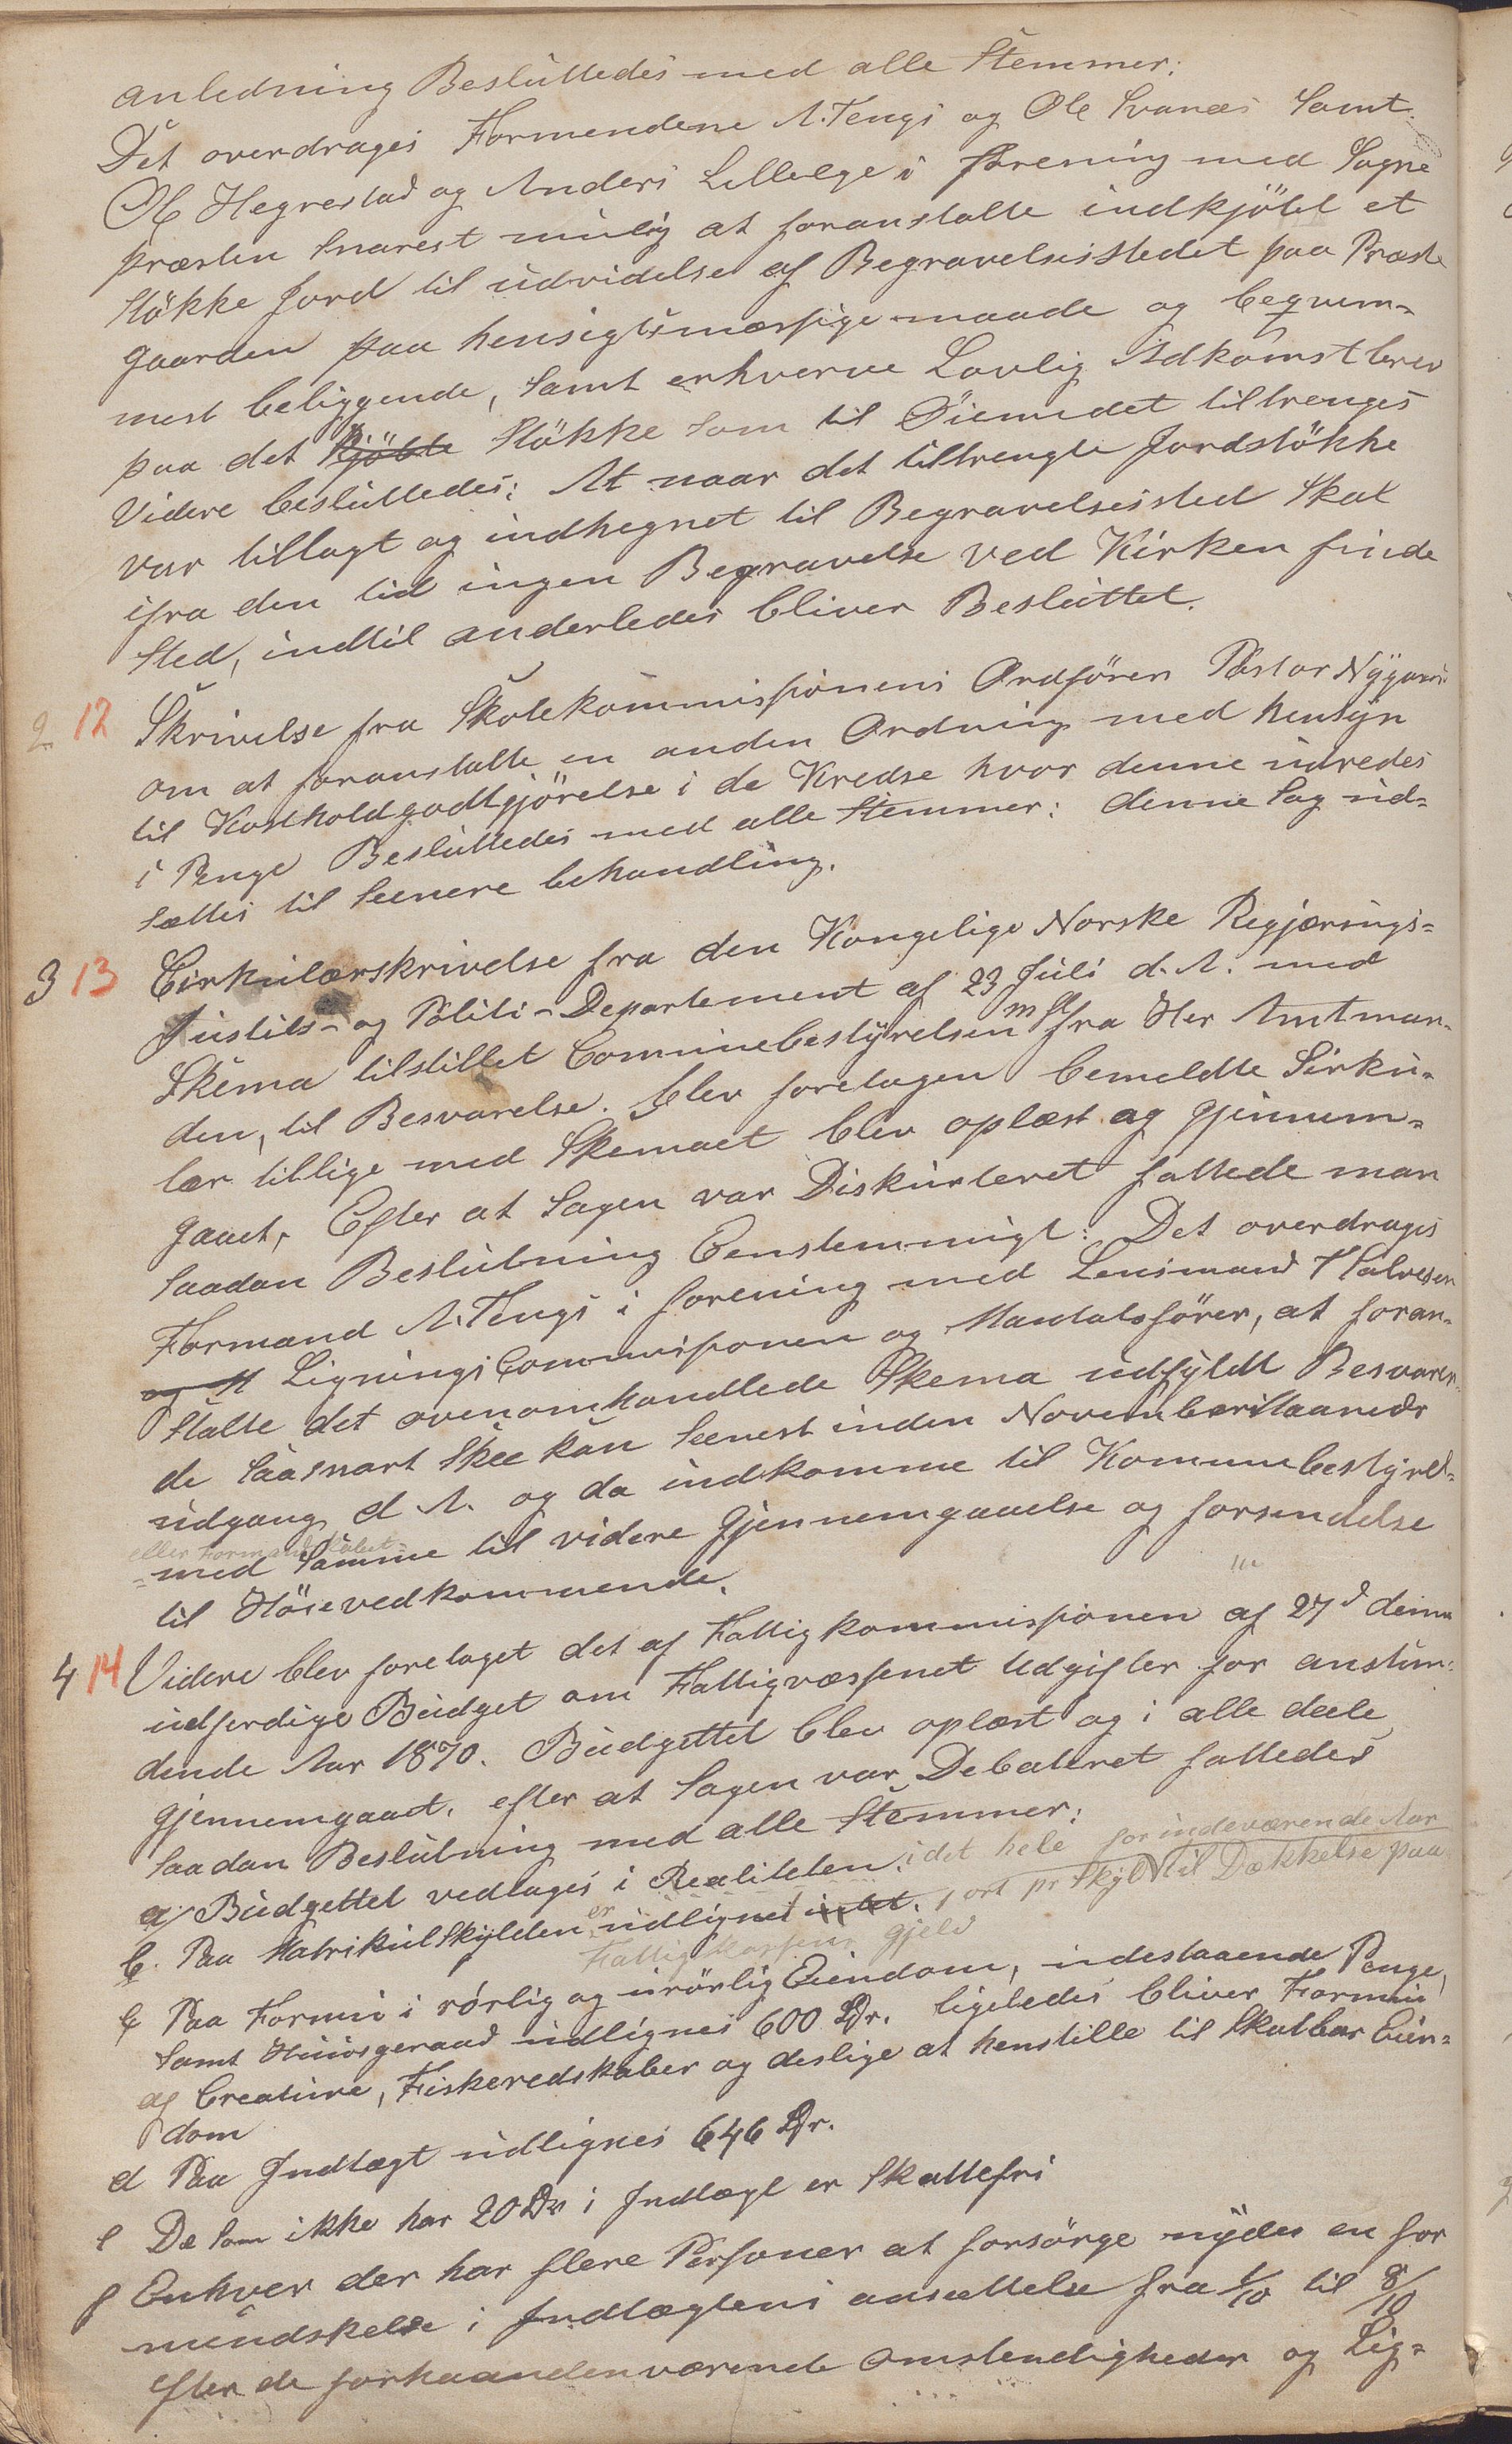 anledning Besluttedes med alle Stemmer:
Det overdrages Formendene A. Tengs og Ole Svanæs Samt
Ole Hegrestad og Anders Lilleelge i forening med Sogne
præsten Snarest mulig at foranstalte indkjöbt et
Stökke Jord til udvidelse af Begravelsesstedet paa Præste
gaarden paa hensigtsmæssige maade og beqvem-
mest beliggende, Samt erhverve Lovlig Adkomstbrev
paa det Kjöbte Stökke Som til Öiemedet tiltrenges
Videre besluttedes: At naar det tiltrengte Jordstökke
var tillagt og indhegnet til Begravelsessted Skal
ifra den tid ingen Begravelse ved Kirken finde
Sted, indtil anderledes bliver Besluttet.
2 12 Skrivelse fra Skolekommissionens Ordförer Pastor Nygaard
om at foranstalte en anden Ordning med hensyn
til Kostholdgodtgjörelse i de Kredse hvor denne udredes
i Penge Besluttedes med alle Stemmer: denne Sag ud-
sættes til Seenere behandling.
3 13 Cirkulærskrivelse fra den Kongelige Norske Regjærings-
Justits- og Politi-Departement af 23 Juli d. A. med
Skema tilstillet Communebestyrelsen m fl fra Her Amtman-
den, til Besvarelse. blev foretagen bemeldte Sirku-
lær tillige med Skemaet blev oplæst og gjinnem-
gaaet, Efter at Sagen var Diskurteret fattede man
Saadan Beslutning Eenstemmigt: Det overdrages
Formand A. Tengs i forening med Lensmand Halvesen
og M LigningsCommissionen og Mandatsförer, at foran-
Stalte det ovenomhandlede Skema udfyldt Besvaren-
de Saasnart Skee kan Seenest inden NovemberMaaneds
udgang d A. og da indkomme til Kommunebestyrel-
eller Formandskabet
= med Samme til videre Gjennemgaaelse og forsendelse
til Höievedkommende.
4 14 Videre blev foretaget det af Fattigkommissionen af 27d dennes
udferdige Budget om Fattigvæssenet Udgifter for anstun-
dende Aar 1870. Budgettet blev oplæst og i alle deele
gjennemgaaet, efter at Sagen var Debateret fattedes
Saadan Beslutning med alle Stemmer:
a/ Budgettet vedtages i Realiteten. i det hele for indeværende Aar
b. Paa Matrikulskylden er udlignet intet. 1 ort pr Skyld til Dækkelse paa
Fattigkassens gjeld
c Paa Formu i rörlig og urörlig Eiendom, udestaaende Penge,
Samt Huusgeraad udlignes 600 Dr. ligeledes bliver Formu
af Creature, Fiskeredskaber og deslige at henstille til Skatbar Eien-
dom
d Paa Indtægt udlignes 646 Dr.
e De Som ikke har 20 Dr i Indtægt er Skattefri
f Enhver der har flere Personer at forsörge nyder en for
mindskelse i Indtægtens ansettelse fra 1/10 til 8/10
efter de forhaandenværende omstendigheder og Lig-